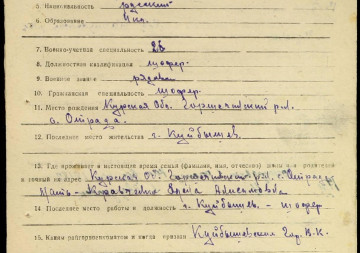 5. Национальность русский
6. Образование
7. Военно-учетная специальность 26
8. Должностная квалификация шофер
9. Военное звание рядовой
10. Гражданская специальность шофер.
11. Место рождения Курская Обл.
с. Отрада.
12. Последнее место жительства г. Куйбышев
13. Где проживает в настоящее время семья (фамилия, имя, отчество) жены или родителей
и точный их адрес Курская Обл. с. Отрада
Мать -
14. Последнее место работы и должность г. Куйбышев. - шофер
15. Каким райгорвоенкоматом и когда призван Куйбышевский Гор. В.К.